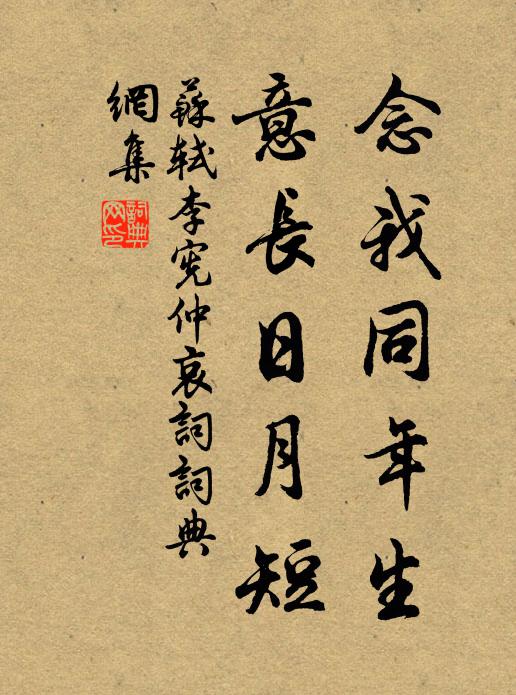 念我同年生
意長日月短
蘇軾李憲仲哀詞詞典
網集
詞典
网印